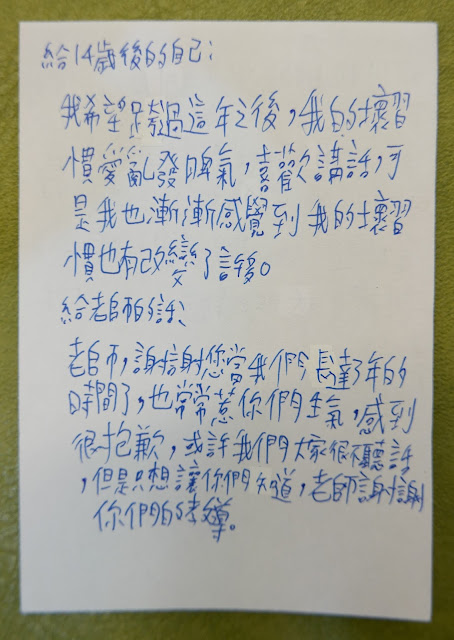 給14歲後的自己:
我希望跨過這年之後,我的壞習
慣愛亂發脾氣,喜歡講話,可
是我也漸漸感覺到我的壞習
慣也有改變了許多。
給老師的話、
老師,謝謝您當我們長達3年的
時間了,也常常惹你們生氣,感到
很抱歉,或許我們大家很不聽話
,但是只想讓你們知道,老師謝謝
你們的教導。